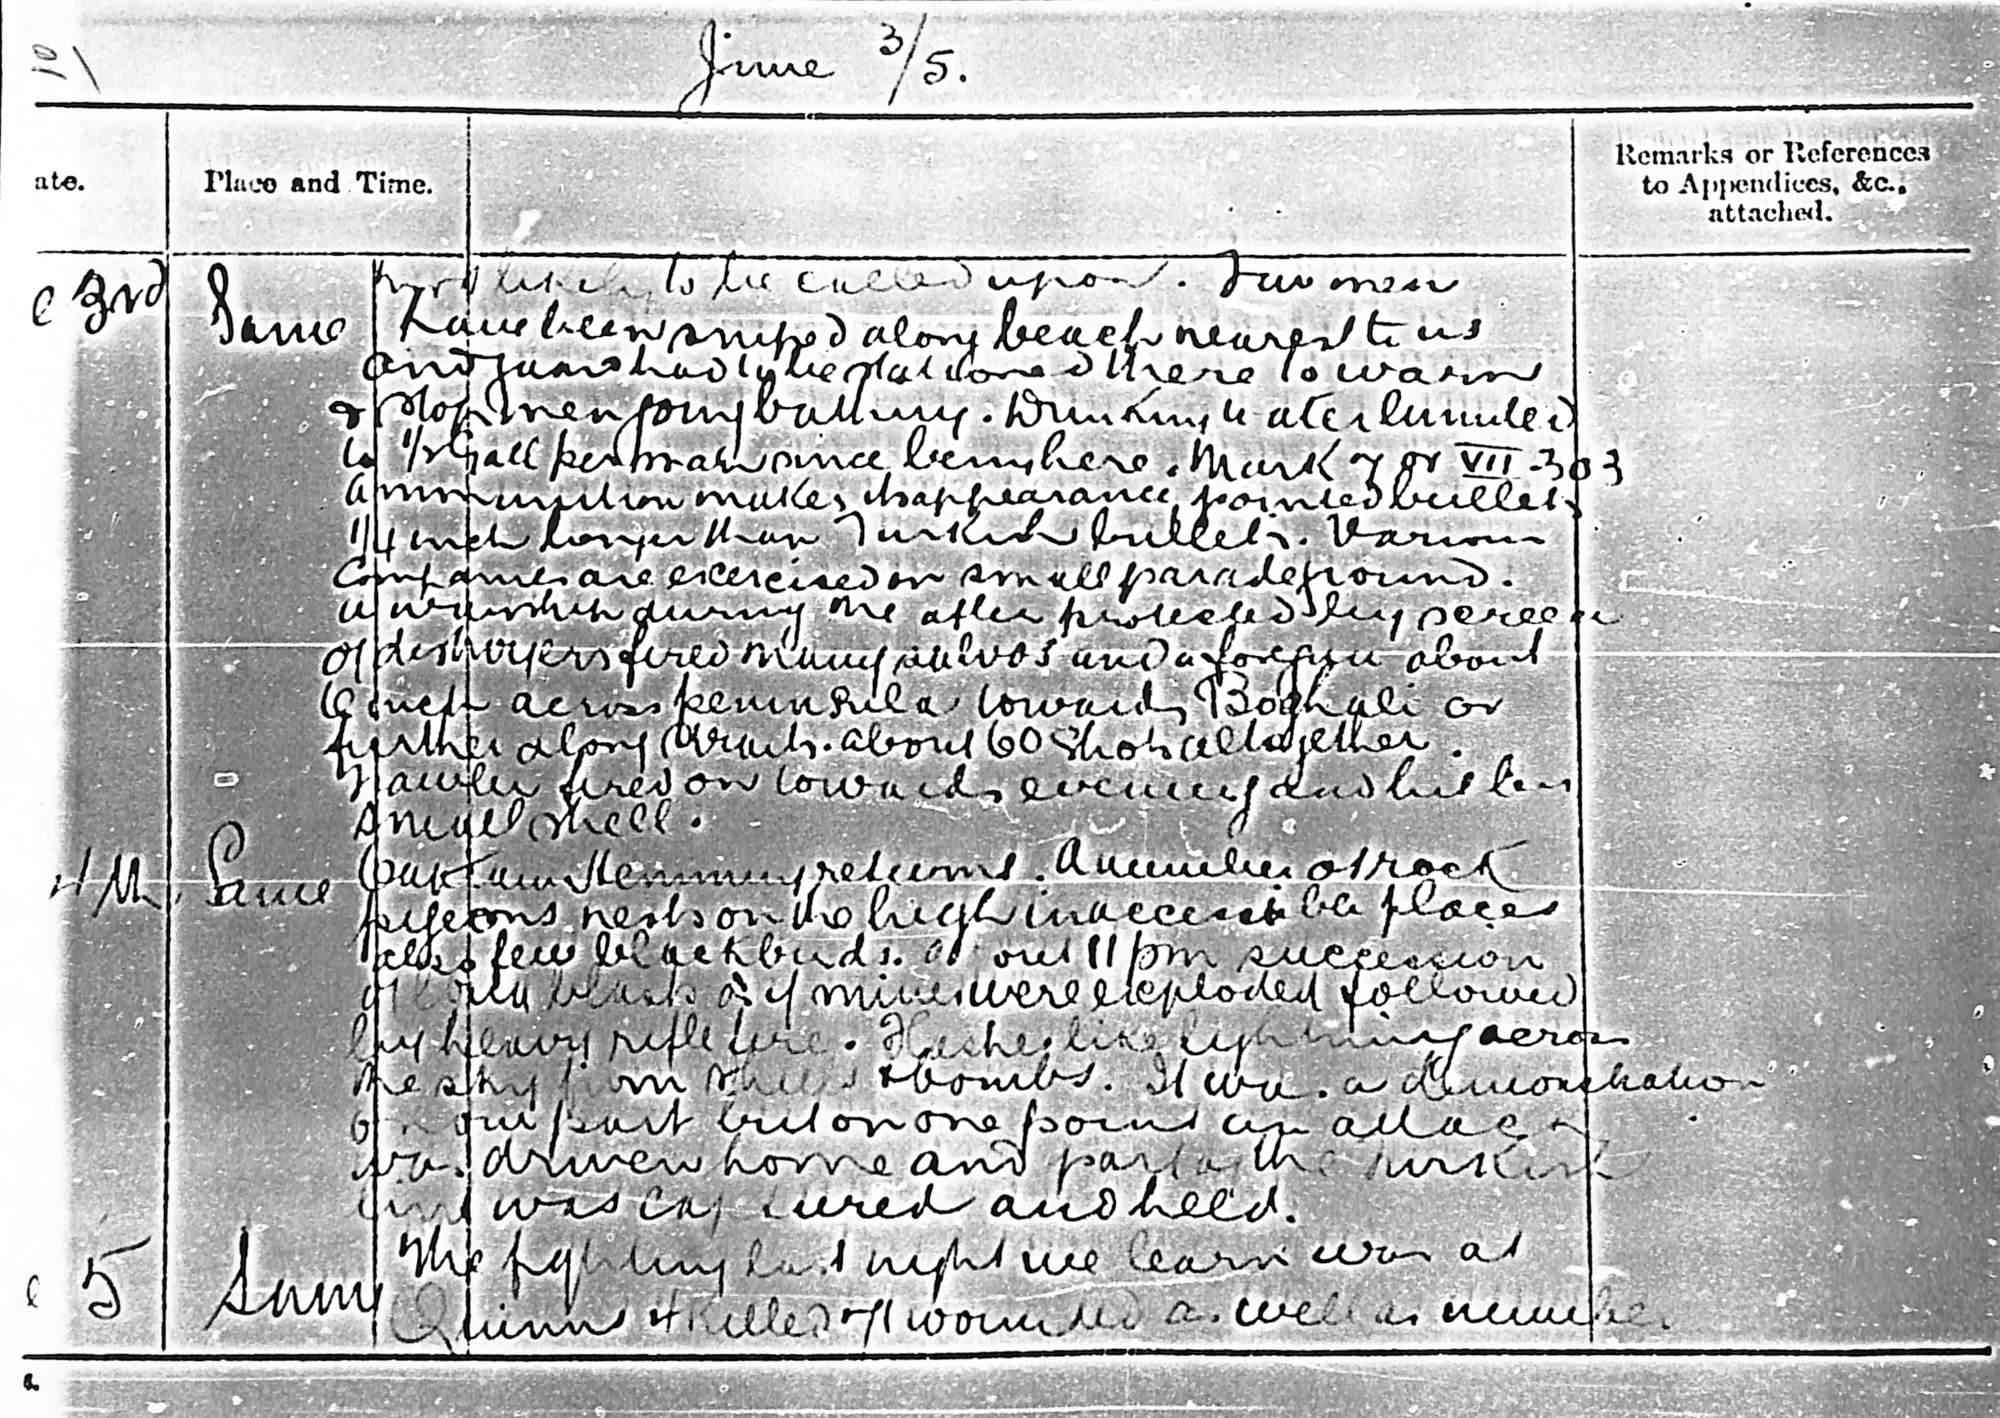 10
June 3/5.
ate.
Place and Time.
Remarks or References
to Appendices, &c.,
attached.
e 3rd
Same
most likely to be called upon. Few men
have been sniped along beach nearest to us
and guard had to be stationed there to warn
& stop men going bathing. Drinking water limited
to 1/2 Gall per man since being here. Mark 7 or VII .303
ammunition makes its appearance, pointed bullets
1/4 inch longer than Turkish bullets. Various
Companies are exercised on small parade ground.
a warship during the after protected by screen
of destroyers fired many salvos and a fore gun about
6 inch across peninsula towards Boghali or
further along Straits. about 60 shots altogether.
Trawler fired on towards evening and hit by
small shell.
4th.
Same
Captain Hemming returns. A number of rock
pigeons nests on the high inaccessible places
also few blackbirds. About 11 pm succession
of loud blasts as if mines were exploded followed
by heavy rifle fire. Flashes like lightning across
the sky from shells & bombs. It was a demonstration
on our part but on one point an attack
was driven home and part of the Turkish
line was captured and held.
e 5
Same
The fighting last night we learn was at
Quinns 4 killed 71 wounded as well as number
a.